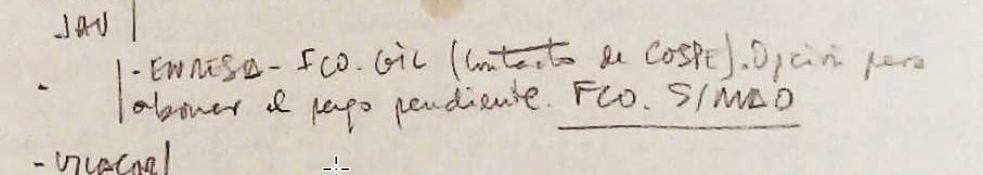 JAV
- EMPRESA - FCO. GIL (Contacto de COSPE). Opción para
abonar el pago pendiente. FCO. SIMAO